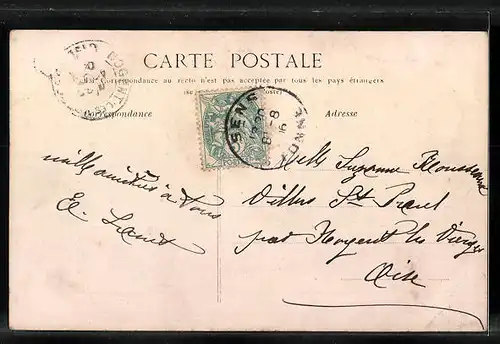 CARTE POSTALE
La Correspondance au recto n'est pas acceptée par tous les pays étrangers
Correspondance
Adresse
SENS
YONNE
8-8
06
NOGENT-LES-
OISE
mille amitiés à tous
E.
Melle Suzanne
Villers St Paul
par Nogent les Vierges
Oise